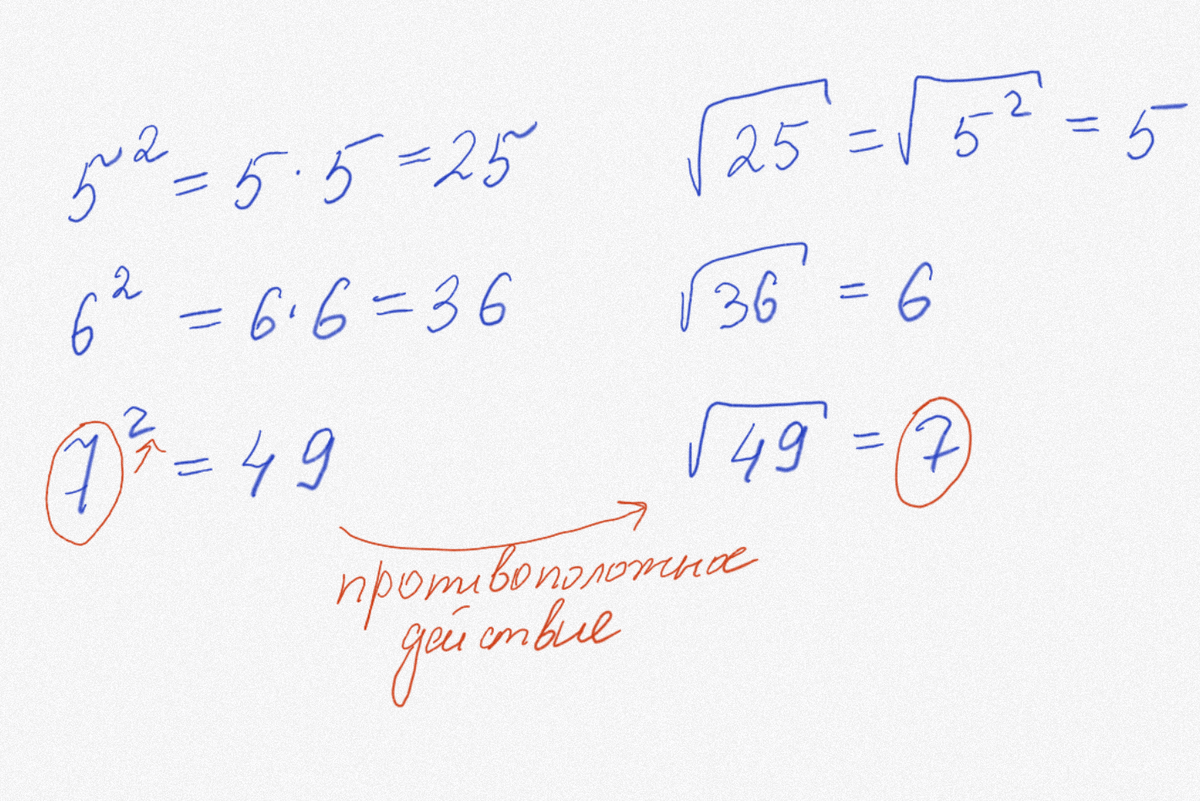 5² = 5 · 5 = 25
√25 = √5² = 5
6² = 6 · 6 = 36
√36 = 6
7² = 49
√49 = 7
противоположное
действие